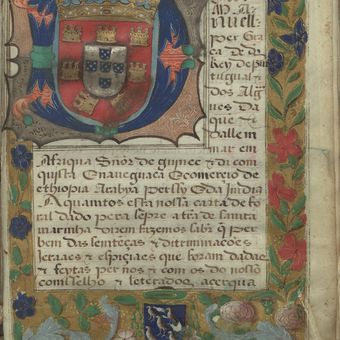 M. A
nuell
per Gra
ça de D.
Rey de Por
tugual &
dos Alg
ves Da
que & 
dalle m
mar em
Afriqua Sñor de guinee & di com
quista & navegaça & comercio de
ethiopia Arabya persya & da Jndia
A quamtos esta nossa carta de fo
ral dado pera sempre a terra de santa
marinha virem fazemos saber q̃ per
bem das semteças & ditriminações
geraaes & espiciaes que foram dadas
& feytas per nos & com os do nosso
comsselho & leterados acerqua